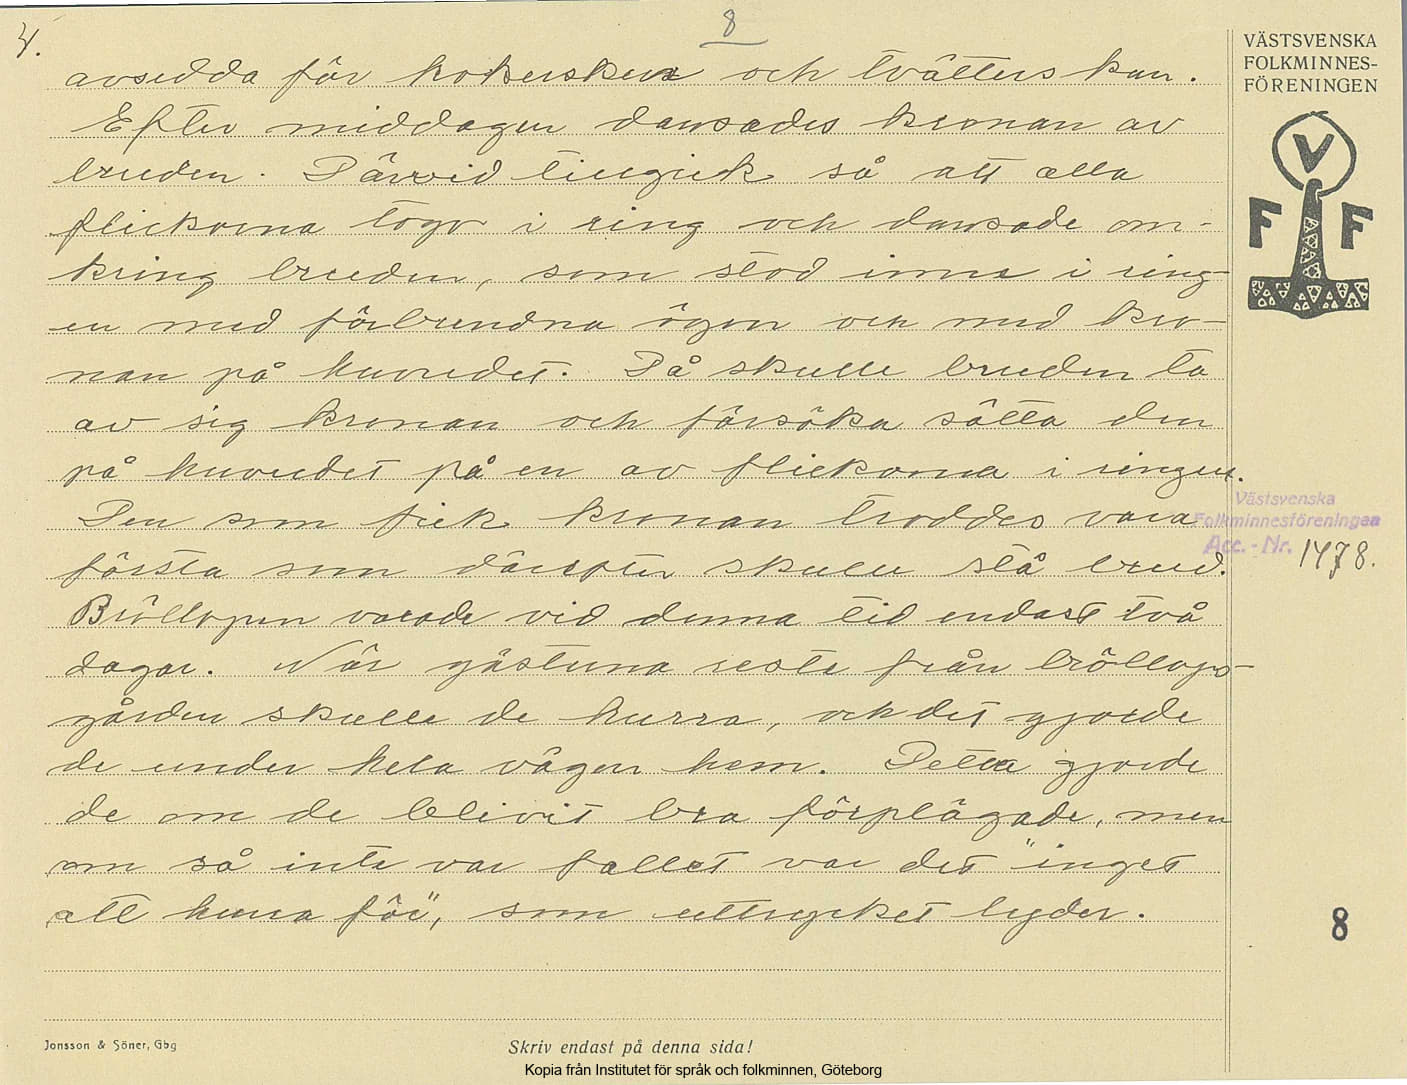 4.
8
avsedda för kokerskan och tvätterskan.
Efter middagen dansades kronan av
bruden. Därvid tillgick så att alla
flickorna togo i ring och dansade om-
kring bruden, som stod inne i ring-
en med förbundna ögon och med kro-
nan på huvudet. Då skulle bruden ta
av sig kronan och försöka sätta den
på huvudet på en av flickorna i ringen.
Den som fick kronan troddes vara
första som därefter skulle stå brud.
Bröllopen varade vid denna tid endast två
dagar. När gästerna reste från bröllops-
gården skulle de hurra, och det gjorde
de under hela vägen hem. Detta gjorde
de om de blivit bra förplägade, men
om så inte var fallet var det "inget
att hurra för", som uttrycket lyder.
VÄSTSVENSKA
FOLKMINNES-
FÖRENINGEN
V
F F
Västsvenska
Folkminnesföreningen
Acc.-Nr. 1478.
8
Jonsson & Söner, Gbg
Skriv endast på denna sida!
Kopia från Institutet för språk och folkminnen, Göteborg